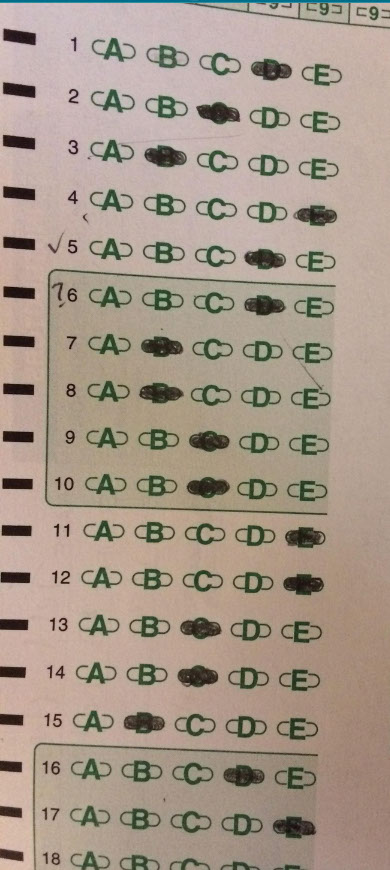 ⊂9⊃ ⊂9⊃
1 A B C D E
2 A B C D E
3 A B C D E
4 A B C D E
✓ 5 A B C D E
? 6 A B C D E
7 A B C D E
8 A B C D E
9 A B C D E
10 A B C D E
11 A B C D E
12 A B C D E
13 A B C D E
14 A B C D E
15 A B C D E
16 A B C D E
17 A B C D E
18 A B C D E